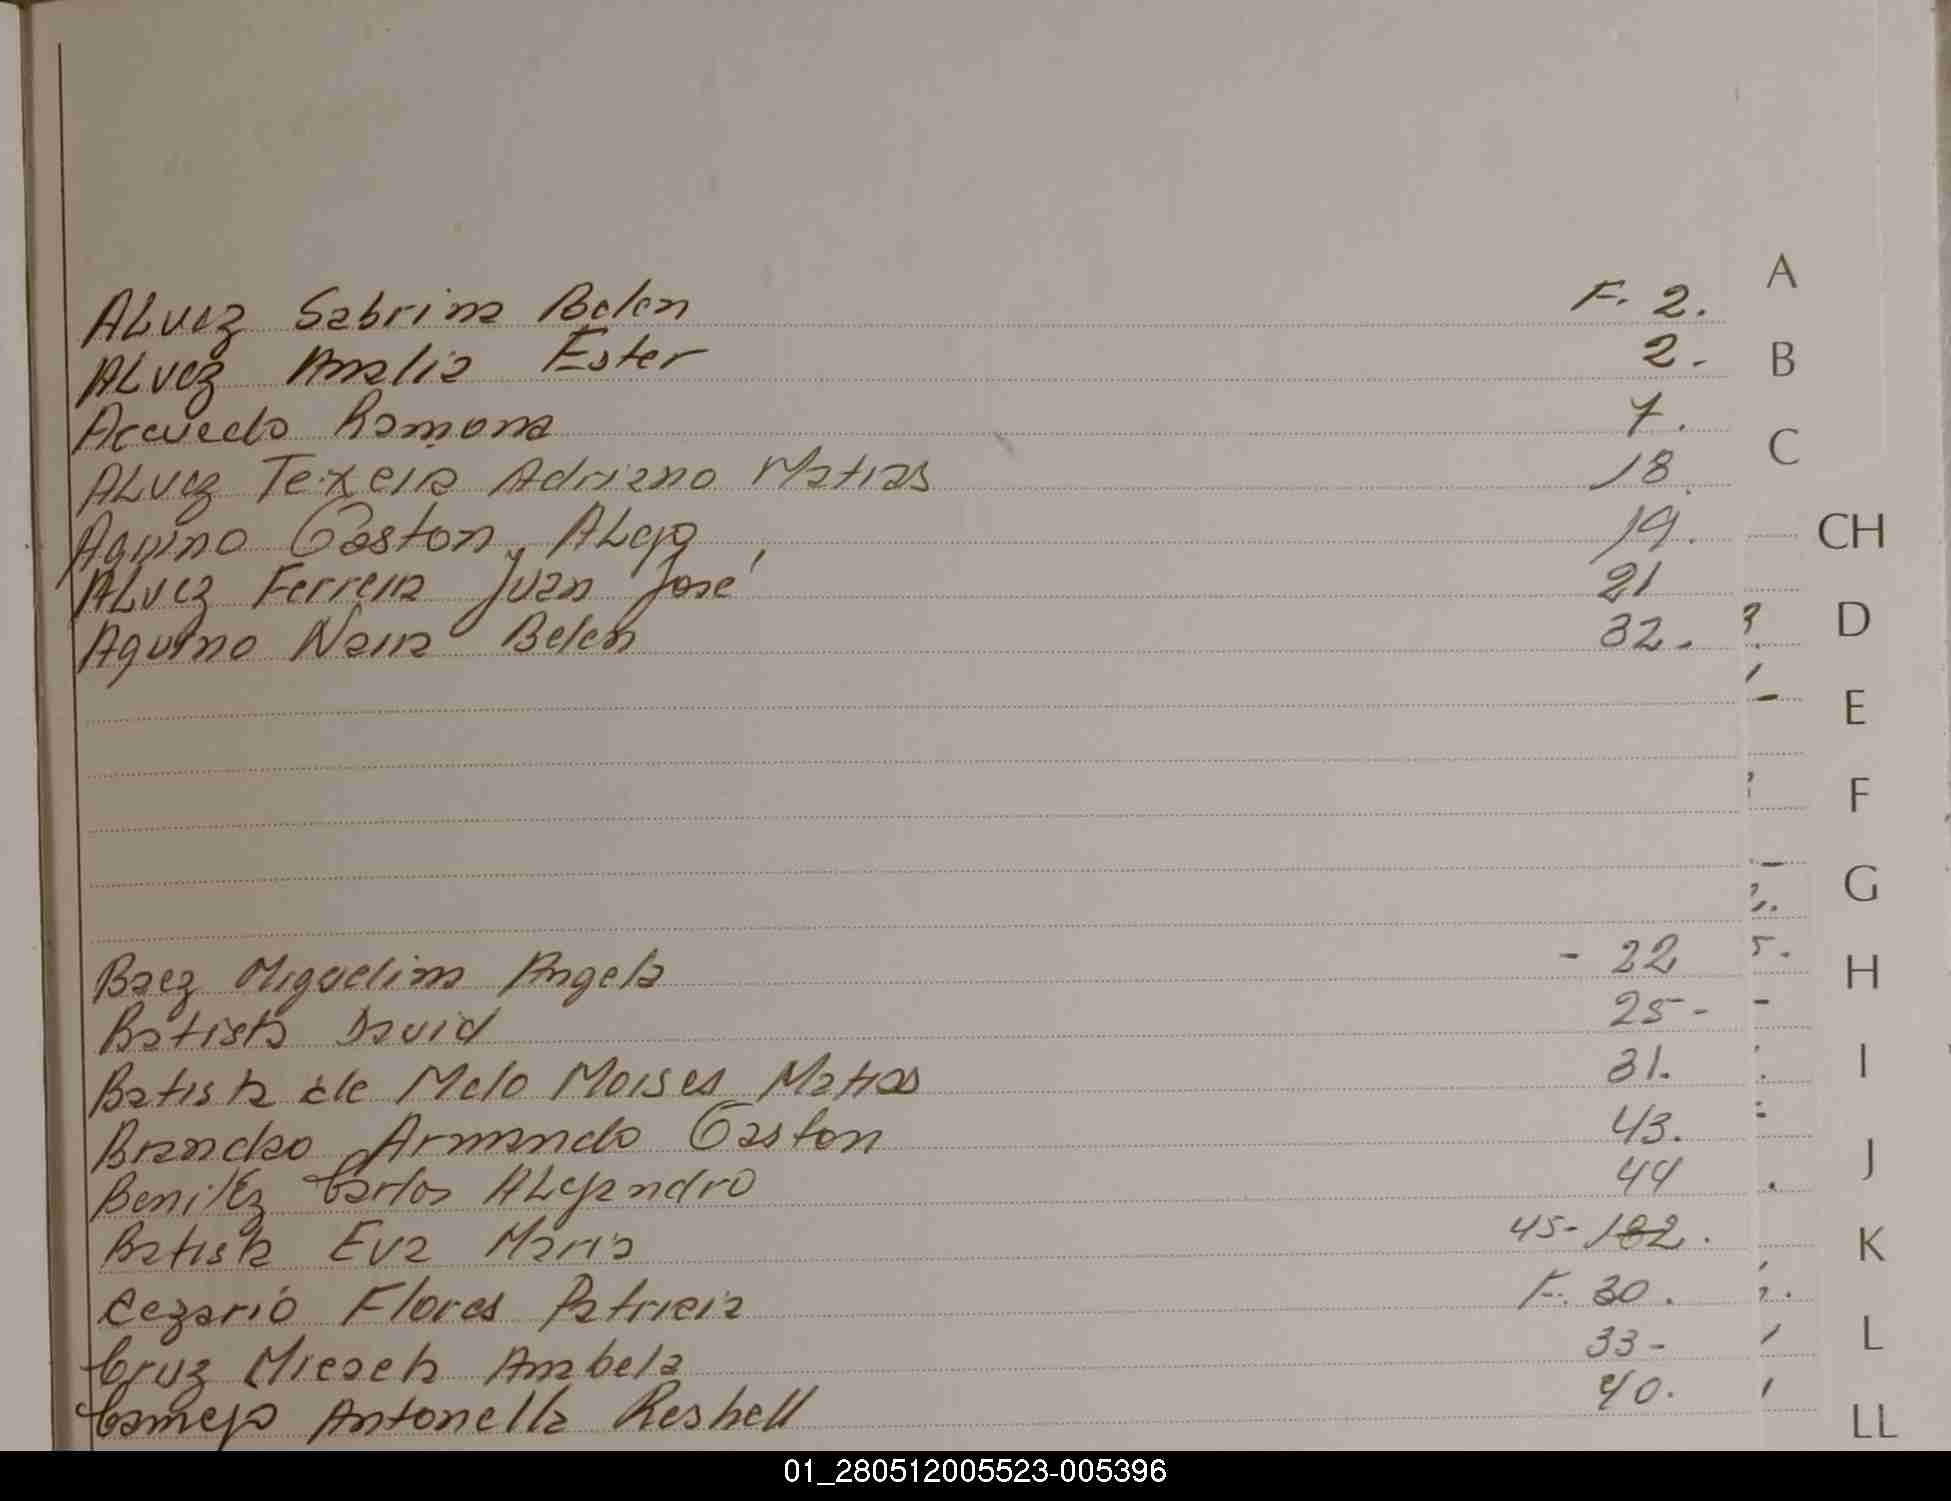 A
ALvez Sabrina Belen F. 2.
B
ALvez Analia Ester 2.
Acevedo Ramona 7.
C
ALvez Texeira Adriano Matias 18.
CH
Aquino Gaston, ALejo 19.
ALvez Ferreira Juan José 21
D
Aquino Naira Belen 32.
E
F
G
Baez Miguelina Angela - 22
H
Batista David 25-
I
Batista de Melo Moises Matias 31.
Brandao Armando Gaston 43.
J
Benitez Carlos ALejandro 44
K
Batista Eva Maria 45-182.
Cezario Flores Patricia F. 30.
L
Cruz Anabela 33-
Camejo Antonella Rashell 40.
LL
01_280512005523-005396